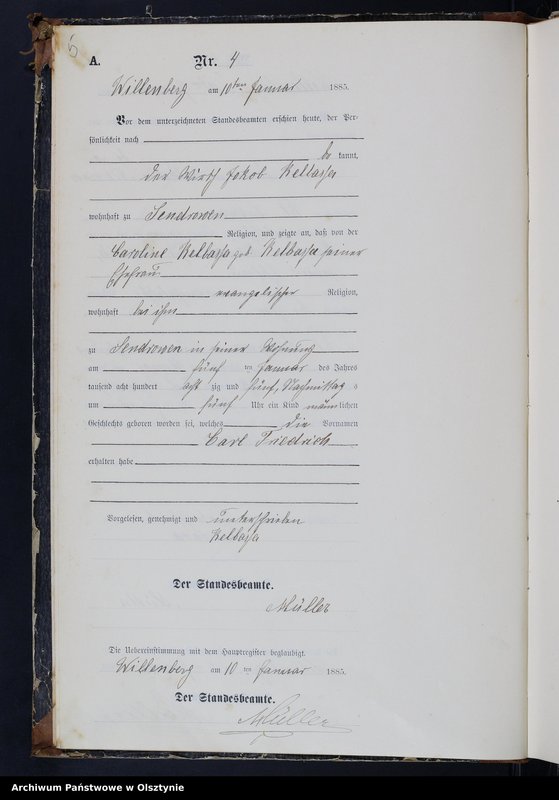 5
A. Nr. 4
Willenberg am 10ten Januar 1885.
Vor dem unterzeichneten Standesbeamten erschien heute, der Per-
sönlichkeit nach
be kannt,
der Wirth Jakob Kelbassa
wohnhaft zu Sendrowen
Religion, und zeigte an, daß von der
Caroline Kelbassa geb. Kelbassa seiner
Ehefrau
evangelischer Religion,
wohnhaft bei ihm
zu Sendrowen in seiner Wohnung
am fünf ten Januar des Jahres
tausend acht hundert acht zig und fünf, Nachmittag s
um fünf Uhr ein Kind männlichen
Geschlechts geboren worden sei, welches die Vornamen
Carl Friedrich
erhalten habe
Vorgelesen, genehmigt und unterschrieben
Kelbassa
Der Standesbeamte.
Müller
Die Uebereinstimmung mit dem Hauptregister beglaubigt.
Willenberg am 10 ten Januar 1885.
Der Standesbeamte.
Müller
Archiwum Państwowe w Olsztynie